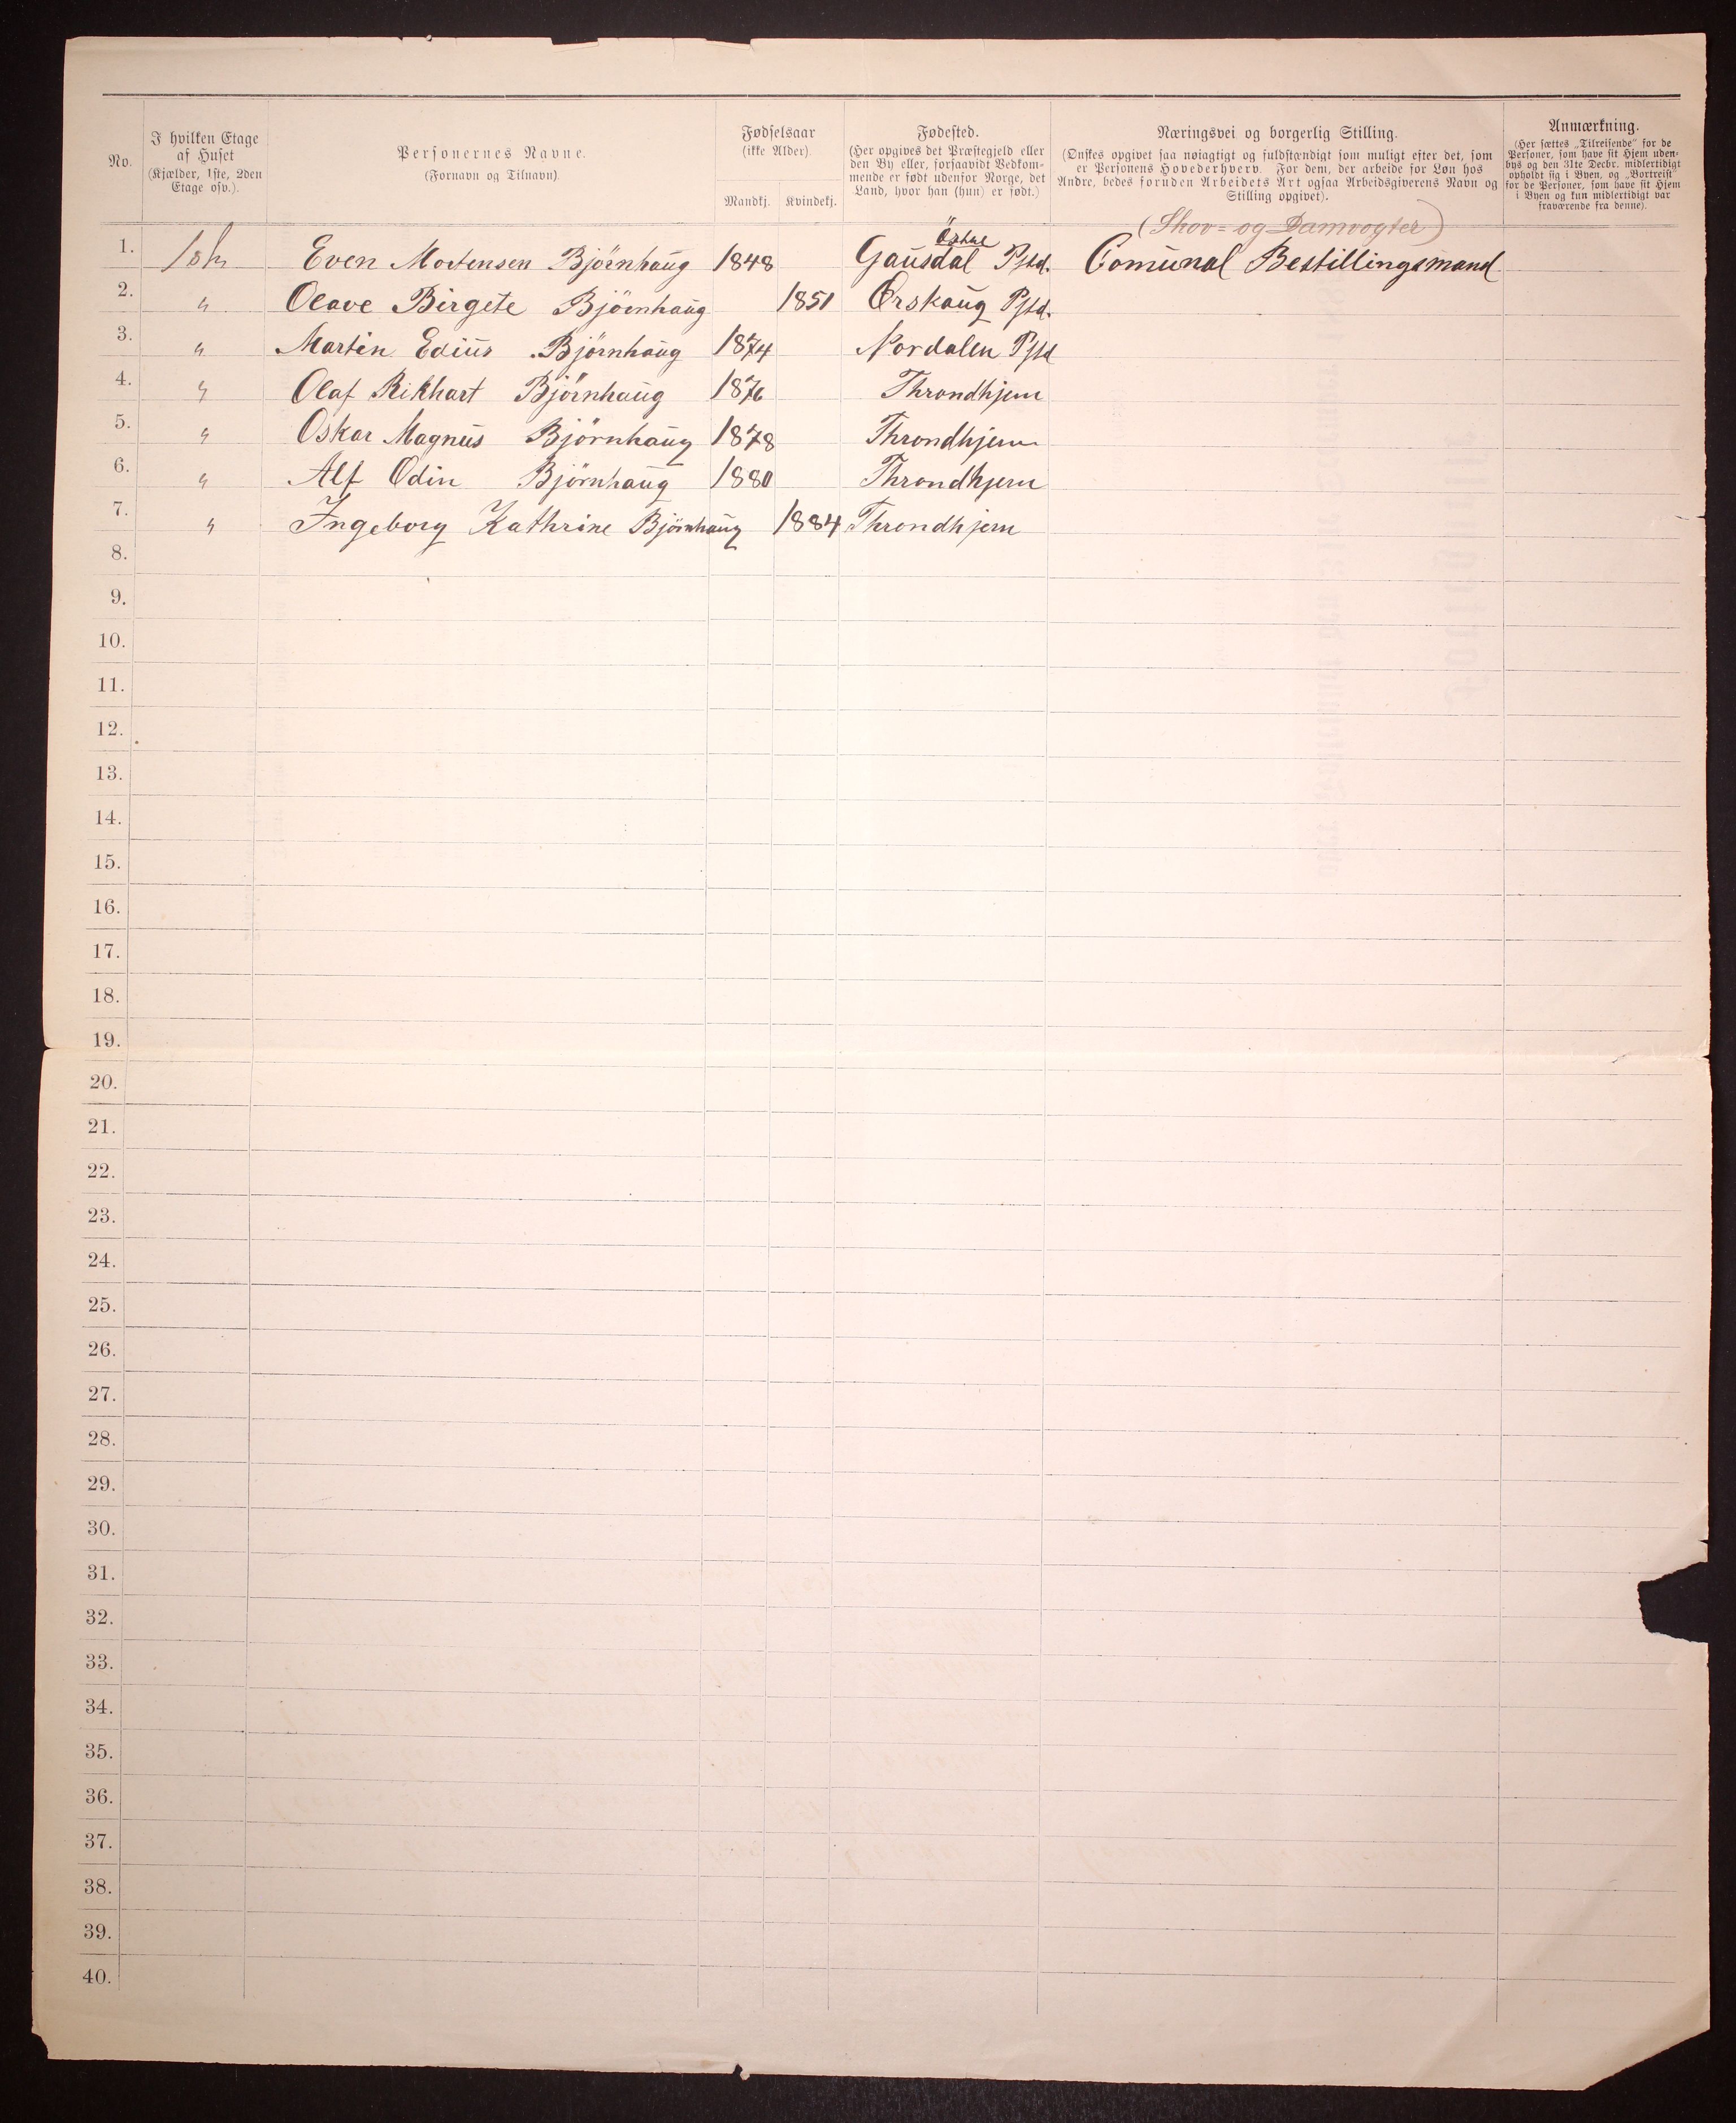 No.
I hvilken Etage
af Huset
(Kjælder, 1ste, 2den
Etage osv.).
Personernes Navne.
(Fornavn og Tilnavn).
Fødselsaar
(ikke Alder).
Mandkj. Kvindekj.
Fødested.
(Her opgives det Præstegjeld eller
den By eller, forsaavidt Vedkom-
mende er født udenfor Norge, det
Land, hvor han (hun) er født.)
Næringsvei og borgerlig Stilling.
(Ønskes opgivet saa nøiagtigt og fuldstændigt som muligt efter det, som
er Personens Hovederhverv. For dem, der arbeide for Løn hos
Andre, bedes foruden Arbeidets Art ogsaa Arbeidsgiverens Navn og
Stilling opgivet).
Anmærkning.
(Her sættes „Tilreisende" for de
Personer, som have sit Hjem uden-
bys og den 31te Decbr. midlertidigt
opholdt sig i Byen, og „Bortreist"
for de Personer, som have sit Hjem
i Byen og kun midlertidigt var
fraværende fra denne).
(Skov- og Damvogter)
Östre
1. Even Mortensen Björnhaug 1848 Gausdal Pgld. Comunal Bestillingsmand
2. " Olave Birgete Björnhaug 1851 Ørskaug Pgld.
3. " Martin Edius Björnhaug 1874 Nordalen Pgld
4. " Olaf Rikhart Björnhaug 1876 Throndhjem
5. " Oskar Magnus Björnhaug 1878 Throndhjem
6. " Alf Odin Björnhaug 1880 Throndhjem
7. " Ingeborg Kathrine Björnhaug 1884 Throndhjem
8.
9.
10.
11.
12.
13.
14.
15.
16.
17.
18.
19.
20.
21.
22.
23.
24.
25.
26.
27.
28.
29.
30.
31.
32.
33.
34.
35.
36.
37.
38.
39.
40.